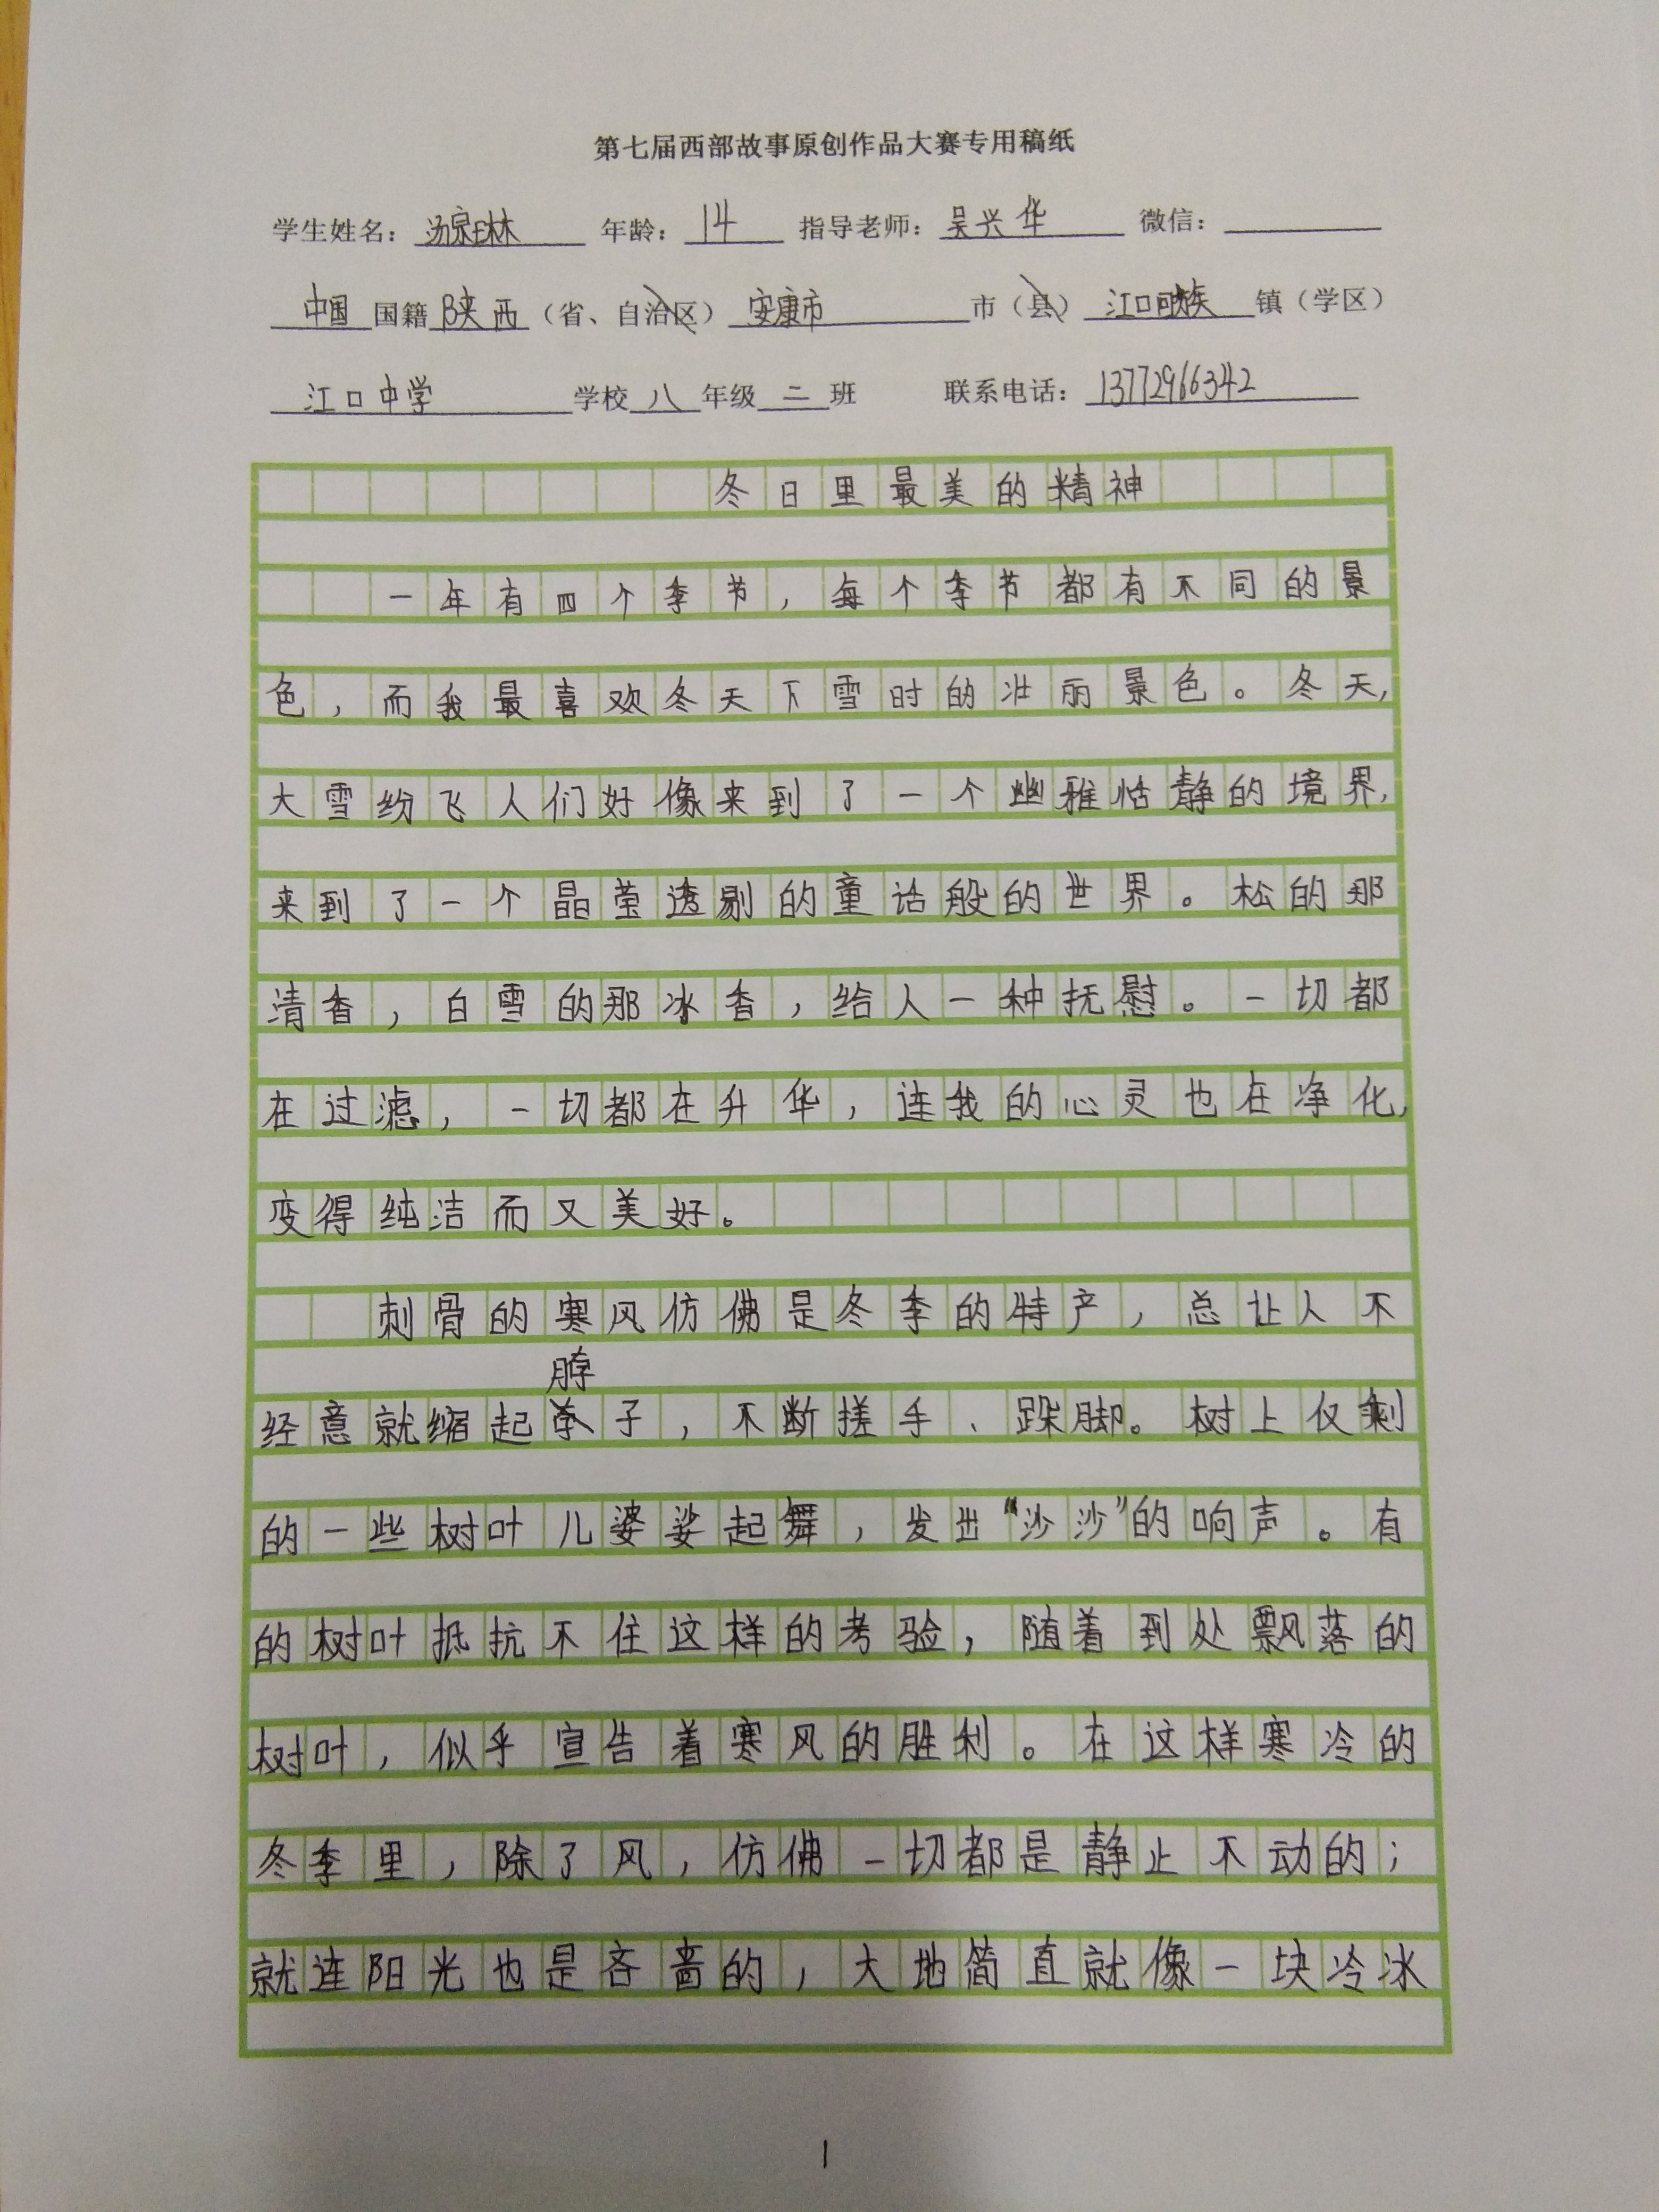 第七届西部故事原创作品大赛专用稿纸
学生姓名：汤宗琳 年龄：14 指导老师：吴兴华 微信：
中国国籍陕西（省、自治区）安康市市（县）江口回族镇（学区）
江口中学学校八年级二班 联系电话：13772966342
冬日里最美的精神
一年有四个季节，每个季节都有不同的景
色，而我最喜欢冬天下雪时的壮丽景色。冬天，
大雪纷飞人们好像来到了一个幽雅恬静的境界，
来到了一个晶莹透剔的童话般的世界。松的那
清香，白雪的那冰香，给人一种抚慰。一切都
在过滤，一切都在升华，连我的心灵也在净化，
变得纯洁而又美好。
刺骨的寒风仿佛是冬季的特产，总让人不
脖
经意就缩起子，不断搓手、跺脚。树上仅剩
的一些树叶儿婆娑起舞，发出“沙沙”的响声。有
的树叶抵抗不住这样的考验，随着到处飘落的
树叶，似乎宣告着寒风的胜利。在这样寒冷的
冬季里，除了风，仿佛一切都是静止不动的；
就连阳光也是吝啬的，大地简直就像一块冷冰
1